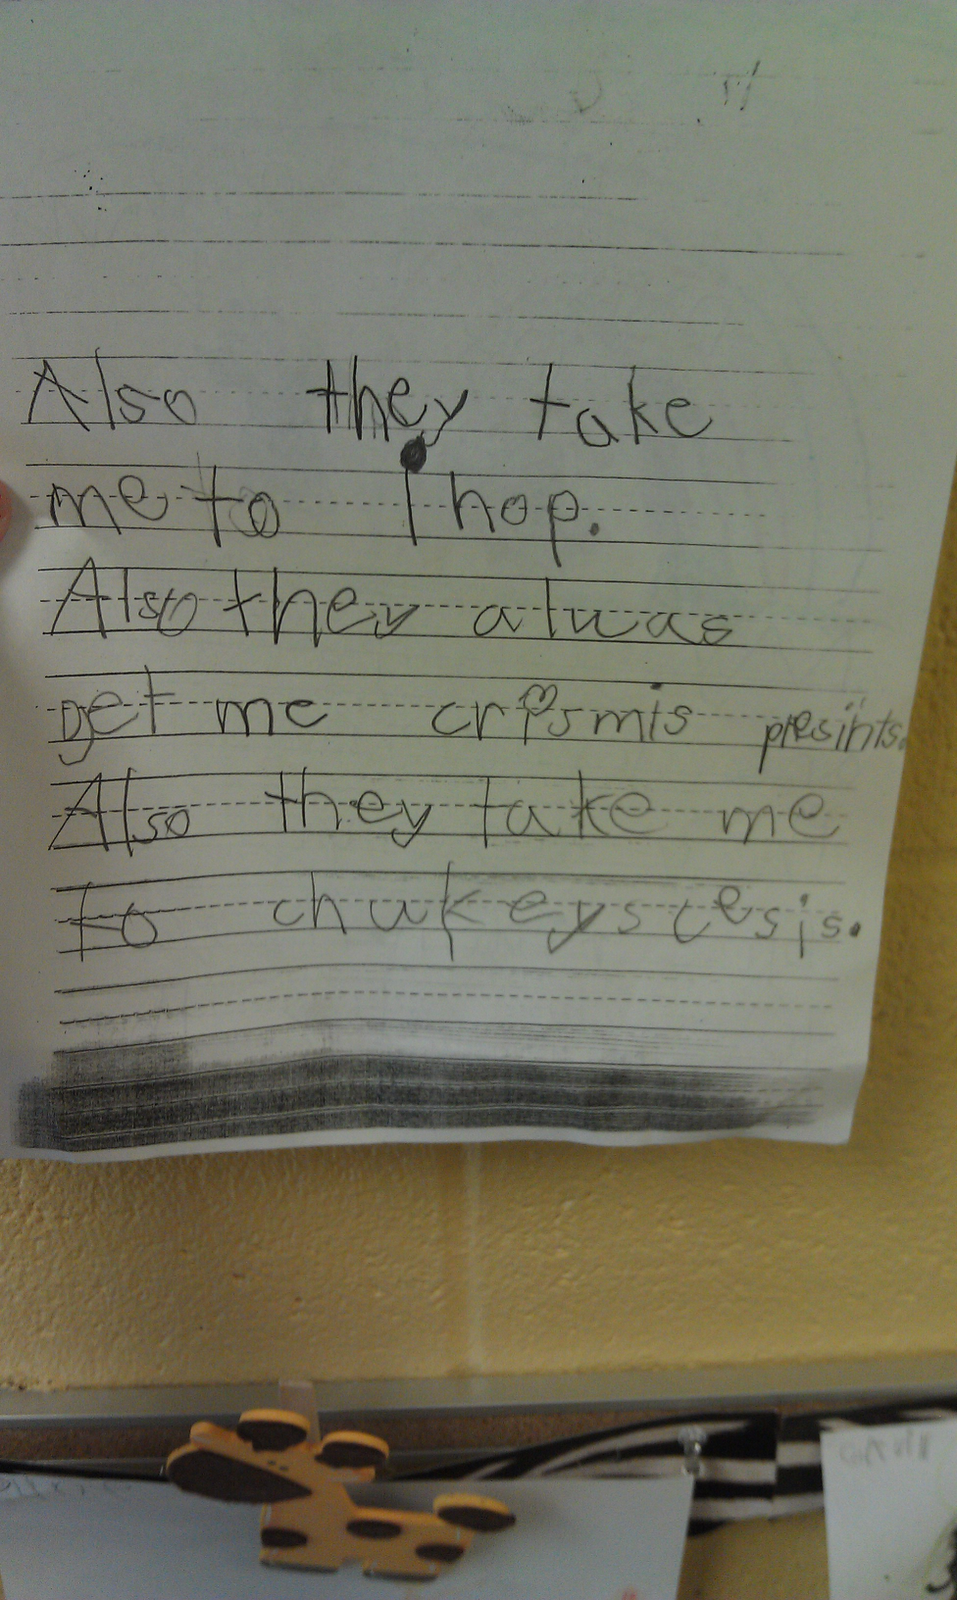 Also they take
me to Ihop.
Also they alwas
get me crismis presints.
Also they take me
to chukeys cesis.